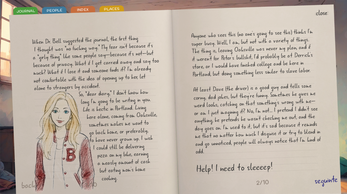 JOURNAL PEOPLE INDEX PLACES
close
When Dr. Bell suggested the journal, the first thing
I thought was "no fucking way." My fear isn't because it's
a "girly thing" like some people say—because it's not—but
because of privacy. What if I get careless and
much? What if I lose it and someone finds it? I'm already
not comfortable with the idea of opening up to her, let
alone to strangers by accident.
In "dear diary" I don't know how
long I'm going to be writing or
life is hectic in Portland. Living
here alone, coming from Oakville,
sometimes makes me want to
go back home, or preferably,
to have never grown up. I wish
I could still be delivering
on my bike, earning
a weekly amount of cash
but eating mom's home
cooking.
B
back
Anyone who sees this (no one's going to see this) thinks I'm
super busy. Well, I am, but not with a variety of things.
The thing is, leaving Oakville was never my plan, and if
it weren't for Peter's bullshit, I'd probably be at Derrick's
store, or I would have tackled college and be here in
Portland, but doing something less similar to slave labor.
At least Dave (the driver) is a good guy and tells some
corny dad jokes, but they're funny. Sometimes he gives me
weird looks, catching on that something's wrong with me—
or am I just imagining it? No, I'm not... I pretend I didn't see
anything, he pretends he wasn't checking me out, and the
day goes on. I'm used to it, but it's sad because it reminds
me that no matter how much I disguise it or try to blend in
and go unnoticed, people will always notice that I'm kind of
odd.
Help! I need to sleeeep!
2/10
seguinte